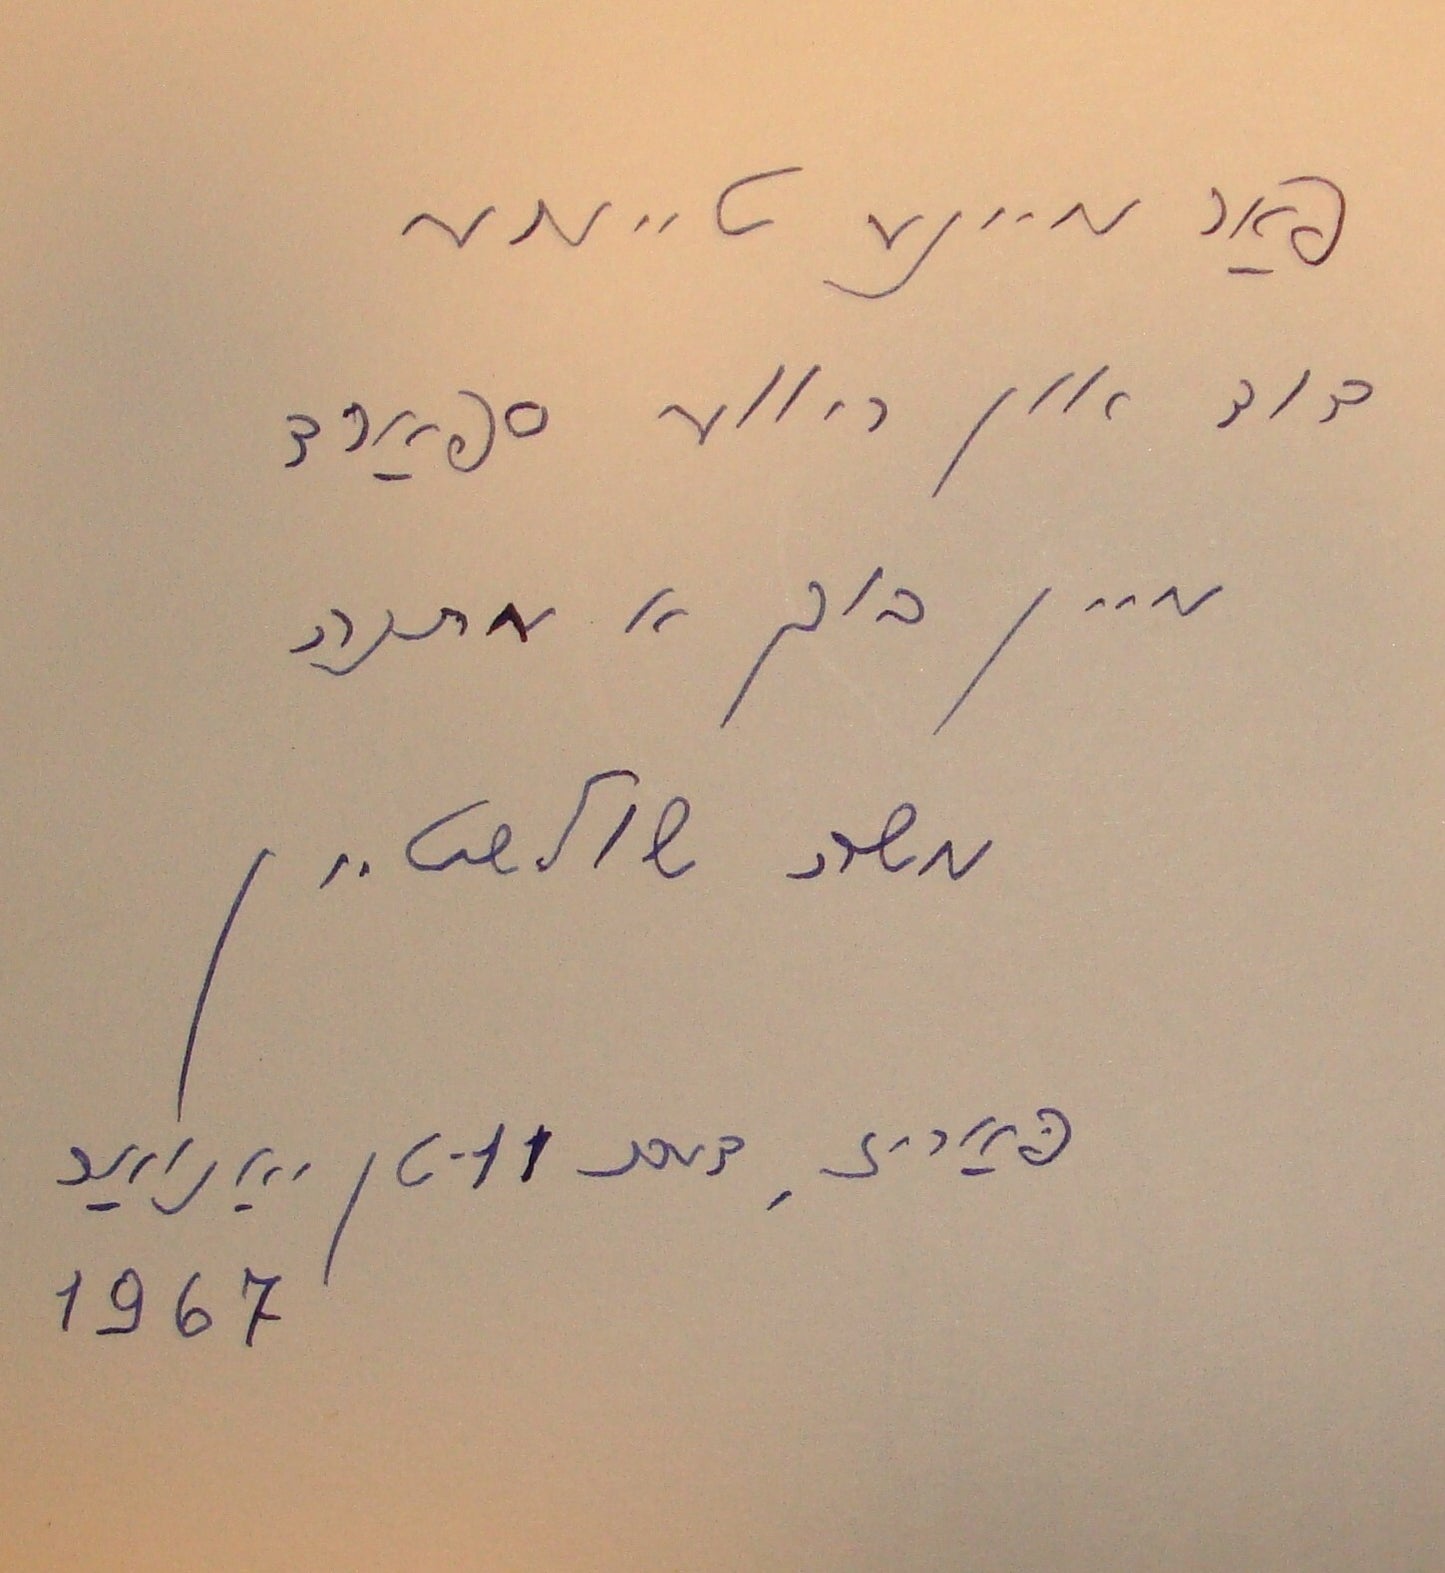 פאַר מיינע טייערע
דוד און ריווע ספאַרד
מיין בוך א מתנה
משה שולשטיין
פּאַריז, דעם 11-טן יאַנואַר
1967